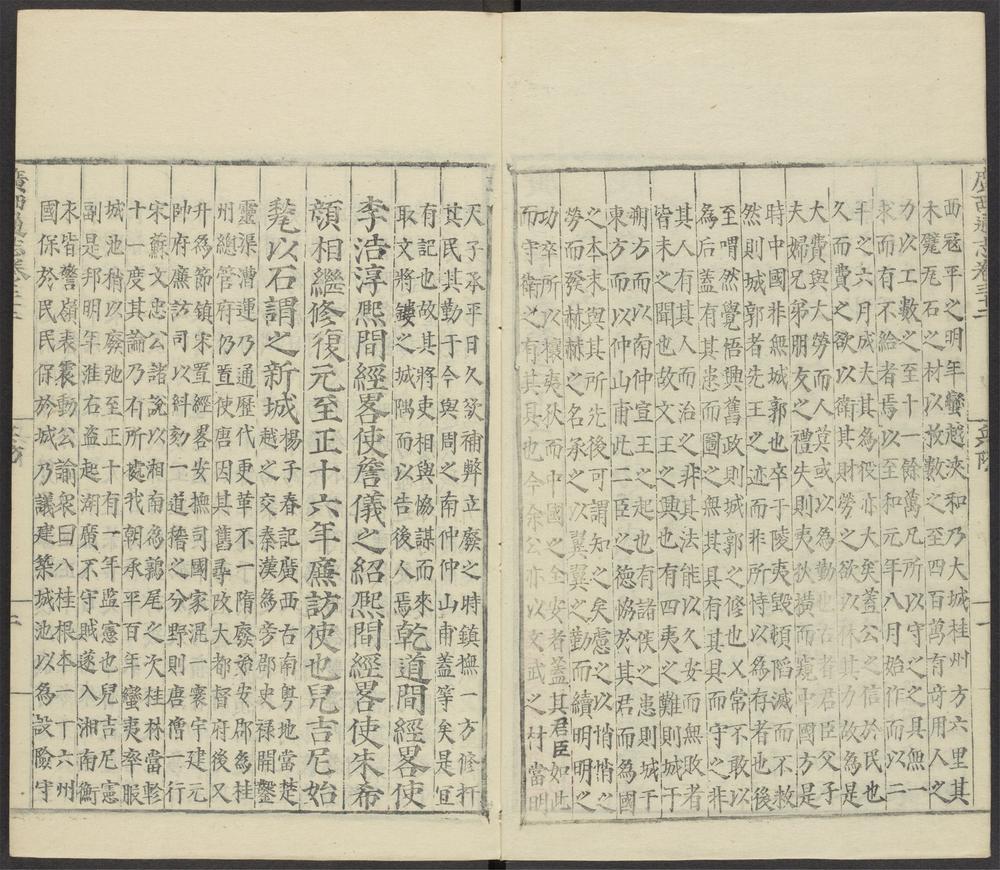 廣西通志卷三十二
西冦平之明年蠻越浹和乃大城桂州方六里其
木甓瓦石之材以枚數之至四百萬有竒用人之
力以工數之至十一餘萬凡所以守之之具無一
求而有不給者焉以至和元年八月始作而以二
年之六月成夫其為役亦大矣蓋公之信於民也
久而費之欲以衛其財勞之欲以休其力故為是
大費與大勞而人莫或以為勤也古者君臣父子
夫婦兄弟朋友之禮失則夷狄橫而窺中國方是
時中國非無城郭也卒于陵夷毀頓陷滅而不救
然則城郭者先王之迹而非所恃以為存者也後
至喟然覺悟興舊政則城郭之修也又常不敢以
為后蓋有其患而圖之無其具有其具而守之非
其人有其人而治之非其法能以久安而無敗者
皆未之聞也故文王之興也有四夷之難則城于
朔方而以南仲宣王之起也有諸侯之患則城于
東方而以仲山甫此二臣之徳恊於其君而為國
之本末與其所先後可謂知之矣慮之以悄悄之
勞而發赫赫之名承之以翼翼之勤而續明明之
功卒所以攘夷狄而中國之全安者蓋其君臣如此
而守衛之有其具也今余公亦以文武之材當明
天子承平日久欲補弊立廢之時鎮撫一方修扞
其民其勤于今與周之南仲仲山甫蓋等矣是宜
有記也故其將吏相與恊謀而來
取文將鏤之城隅而以告後人焉乾道間經畧使
李浩淳熈間經畧使詹儀之紹熈間經畧使朱希
顏相繼修復元至正十六年廉訪使也兒吉尼始
甃以石謂之新城楊子春記廣西古南粵地當楚
越之交秦漢為旁郡史祿開鑿
靈渠漕運乃通歷代更革不一隋廢始安郡為桂
州總管府仍置使唐因其舊尋改大都督府後又
升為節鎮宋置經畧安撫司國家混一寰宇建元
帥府廉訪司以糾劾一道稽之分野則唐僧一行
宋蘇文忠公諸說以湘南為鶉尾之次桂林當軫
十一度其論乃有所處我朝承平百年蠻夷率服
城池猶以廢弛至正十有一年監憲也兒吉尼憲
副是邦明年淮右盜起湖廣不守賊遂入湘南衡
永皆警嶺表震動公諭衆曰八桂根本一丁六州
國保於民民保於城乃議建築城池以為設險守